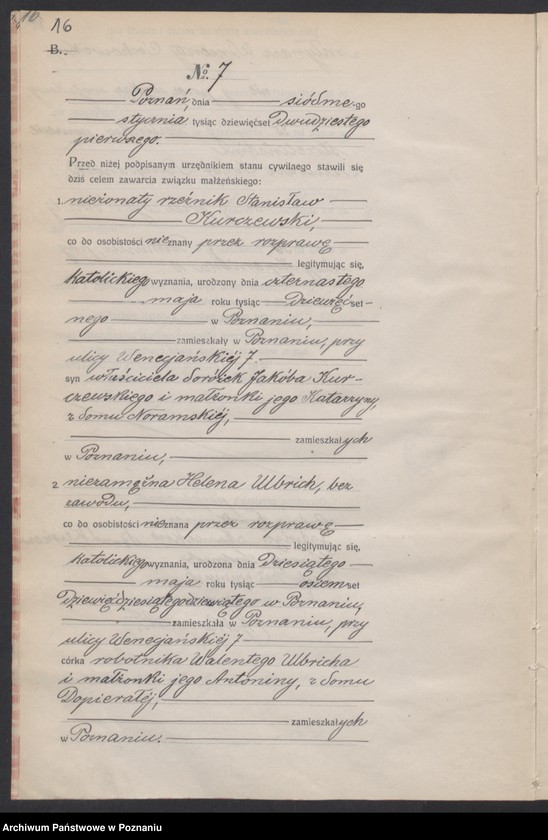 16
16
B.
No. 7
Poznań, dnia siódme-go
stycznia tysiąc dziewięćset Dwudziestego
pierwszego.
Przed niżej podpisanym urzędnikiem stanu cywilnego stawili się
dziś celem zawarcia związku małżeńskiego:
1. nieżonaty rzeźnik Stanisław
Kurczewski,
co do osobistości nieznany przez rozprawę
legitymując się,
Katolickiego wyznania, urodzony dnia czternastego
maja roku tysiąc Dziewięćset-
nego w Poznaniu,
zamieszkały w Poznaniu, przy
ulicy Wenecjańskiéj 7.
syn właściciela Dorożek Jakóba Kur-
czewskiego i małżonki jego Katarzyny,
z domu Noramskiéj,
zamieszkałych
w Poznaniu,
2. niezamężna Helena Ulbrich, bez
zawodu,
co do osobistości nieznana przez rozprawę
legitymując się,
Katolickiego wyznania, urodzona dnia Dziesiątego
maja roku tysiąc ośiemset
Dziewięćdziesiątegodziewiątego w Poznaniu,
zamieszkała w Poznaniu, przy
ulicy Wenecjańskiéj 7
córka robotnika Walentego Ulbricha
i małżonki jego Antoniny, z domu
Dopieratéj,
zamieszkałych
w Poznaniu.
Archiwum Państwowe w Poznaniu